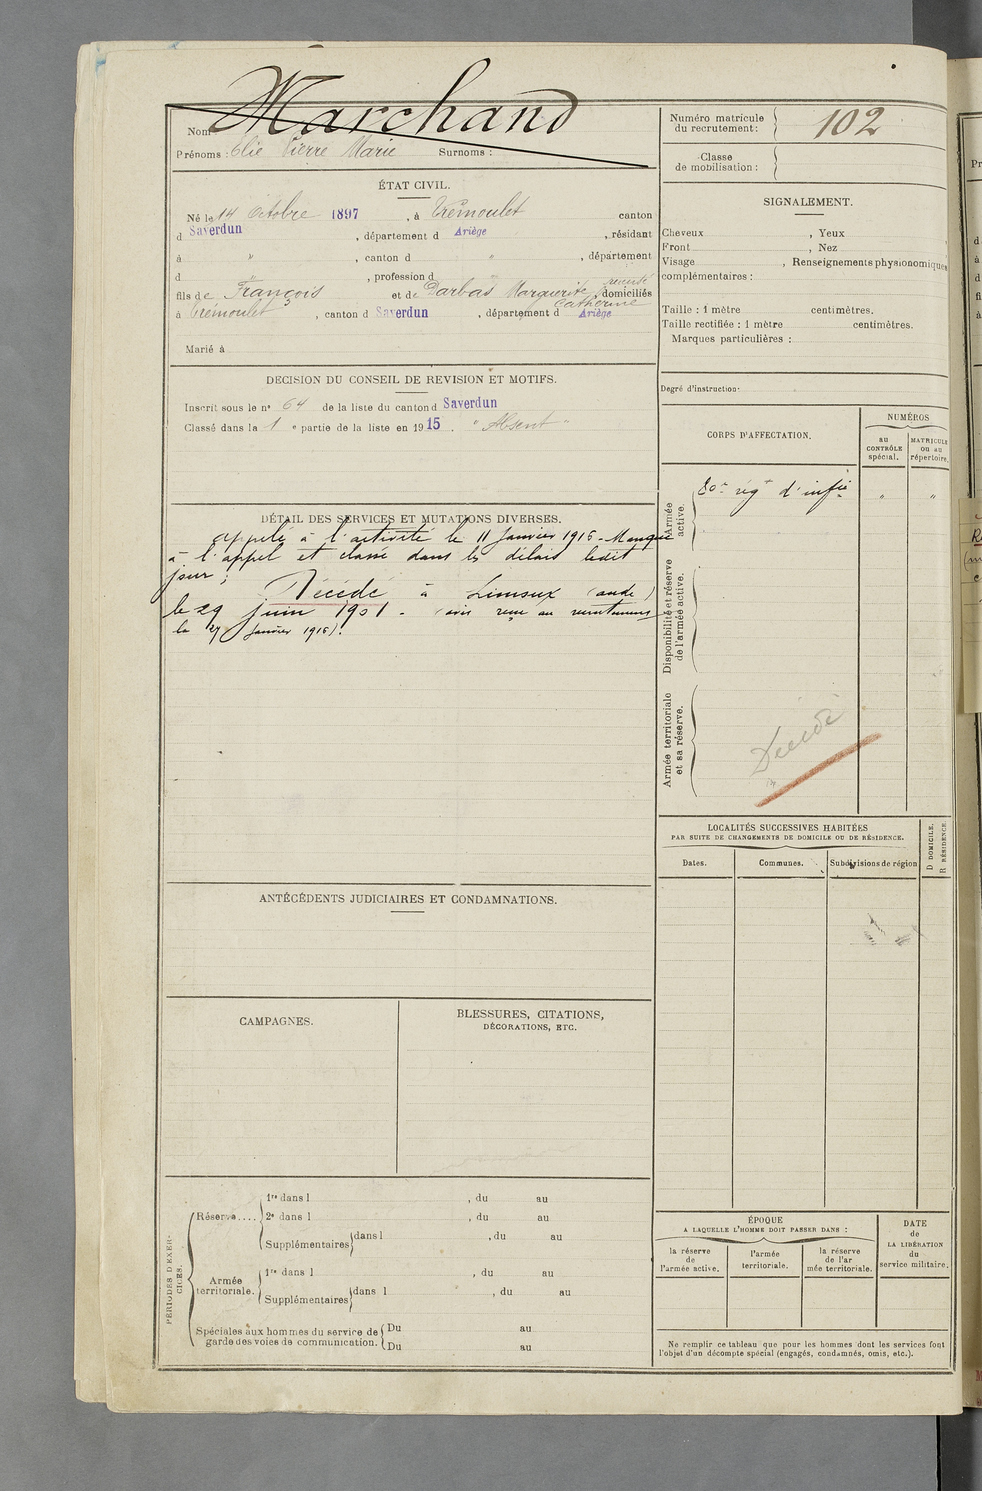 Marchand
Nom
Prénoms : Elie Pierre Marie Surnoms :
ÉTAT CIVIL.
Né le 14 Octobre 1897, à Trémoulet canton
d Saverdun, département d Ariège, résidant
à ", canton d ", département
d ", profession d
fils de François et de Darbas Marguerite, domiciliés
Catherine
à Trémoulet, canton d Saverdun, département d Ariège
Marié à
DECISION DU CONSEIL DE REVISION ET MOTIFS.
Inscrit sous le n° 64 de la liste du canton d Saverdun
Classé dans la 1 e partie de la liste en 1915. "Absent"
DÉTAIL DES SERVICES ET MUTATIONS DIVERSES.
appelé à l'activité le 11 Janvier 1916 - Manque
à l'appel et classé dans les délais ledit
jour ;
Décédé à Limoux (aude)
le 29 juin 1901 - (avis reçu au recrutement
le 27 Janvier 1916).
ANTÉCÉDENTS JUDICIAIRES ET CONDAMNATIONS.
CAMPAGNES.
BLESSURES, CITATIONS,
DÉCORATIONS, ETC.
PÉRIODES D'EXER-
CICES.
Réserve....
1re dans l , du au
2e dans l , du au
Supplémentaires dans l , du au
Armée
territoriale.
1re dans l , du au
Supplémentaires dans l , du au
Spéciales aux hommes du service de
garde des voies de communication.
Du au
Du au
Numéro matricule
du recrutement : 102
Classe
de mobilisation :
SIGNALEMENT.
Cheveux , Yeux
Front , Nez
Visage , Renseignements physionomiques
complémentaires :
Taille : 1 mètre centimètres.
Taille rectifiée : 1 mètre centimètres.
Marques particulières :
Degré d'instruction :
CORPS D'AFFECTATION.
NUMÉROS
au
CONTRÔLE
spécial.
MATRICULE
ou au
répertoire.
Armée
active.
80e régt d'infie " "
Disponibilité et réserve
de l'armée active.
Armée territoriale
et sa réserve.
Décédé
LOCALITÉS SUCCESSIVES HABITÉES
PAR SUITE DE CHANGEMENTS DE DOMICILE OU DE RÉSIDENCE.
D DOMICILE.
R RÉSIDENCE
Dates.
Communes.
Subdivisions de région
ÉPOQUE
A LAQUELLE L'HOMME DOIT PASSER DANS :
la réserve
de
l'armée active.
l'armée
territoriale.
la réserve
de l'ar
mée territoriale.
DATE
de
LA LIBÉRATION
du
service militaire.
Ne remplir ce tableau que pour les hommes dont les services font
l'objet d'un décompte spécial (engagés, condamnés, omis, etc.).